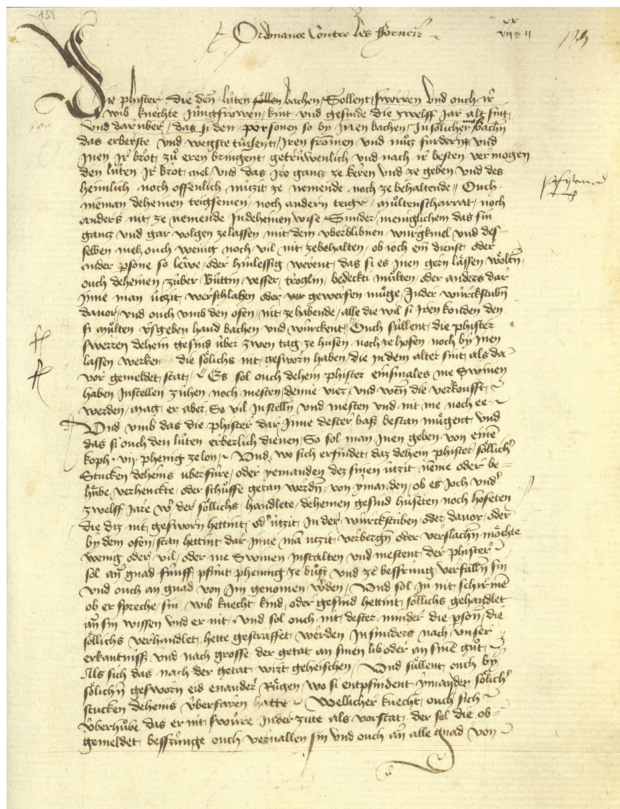 139
Ordnance Contre les Forneir
139
Die phister die den lüten föllen bachen / Söllent sweren Und ouch ir
wib knechte Jungfrowen kint und gesinde die zwelff Jar alt sint
und darüber / das si den personen so by inen bachen / In sölichem bachen
das erberste und wegste tügent / iren fromen und nutz fürdern und
Inen ir brot zü eren bringent / getrüwenlich und nach ir besten vermogen
den lüten ir brot / mel und das iro gantz ze keren und ze geben und des
heimlich noch offenlich nützit ze nemende noch ze behaltende / Ouch
nieman deheinen teigsemen / noch andern teig / multenscharrat / noch
anders nit ze nemende Indeheinen wise / Sunder menglichem das sin
gantz und gar volgen ze lassen / mit dem überblibnen würgkmel und des
selben mels ouch wenig noch vil nit zebehalten / ob ioch ein dienst oder
ander psone so lewe / oder hinlessig werent / das si es inen gern lassen wöltin
ouch deheinen / züber / Büttin / vesser / tröglin / bedeckt multen / oder anders dar
Inne man ützit verschlahen oder vor gewerfen müge / Inder würckstubn
davor / und ouch umb den ofen / nit ze habende / alle die wil si iren kunden den
si multen ussgeben hand bachen und würckent / Ouch süllent / die phister
sweren dehein gesind über zwen tag ze husen / noch ze hofen / noch by inen
lassen werken / die sölichs nit gesworn haben / die in dem alter sint als da
vor gemeldet / stat / Es sol ouch dehein phister einsmales me Swinen
haben Instellen zühen / noch mesten / denne vier / und wenn die verkoufft
werdent / mag er aber / So vil Instelln und mesten und nit me noch ee
Und umb das die phister dar Inne dester baß bestan mügent und
das si ouch den lüten erberlich dienen / So sol man inen geben von einem
koph / vij phenig ze lon / Und / wo sich erfindet / das dehein phister söllichr
Stucken deheins überfure / oder iemanden des sinen ützit neme oder be-
hübe / verhenckte / oder schüffe getan werdn / von iemanden / ob es Joch undr
zwelff Jare wer der söllichs handlete / deheinen gesind huseten noch hofeten
die diz nit gesworn hettint / oder ützit In der würckstuben / oder davor / oder
by dem ofen / stan hettint dar inne man ützit verbergn oder verslachn möchte
wenig oder vil / oder me Swinen instalten und mestent / der phister
sol an gnad fünff pfunt phennig ze büß und ze bessrung vervallen sin
und ouch an gnad von im genomen werden / Und sol in nit schirmen
ob er spreche / sin wib knecht kind / oder gesind hettint / söllichs gehandlet
an sin wissen und er nit / Und sol ouch nit dester minder die pson / die
söllichs verhandlet hette gestraffet werden / Insunders nach unser
erkantniss und nach grosse der getat an sinen lib oder an sinem güt
Als sich das nach der getat wirt geheischen / Und süllent ouch by
sölichem gesworn eid enander rügen / wo si entpfindent / iemander sölichr
stucken deheins überfaren hatte / Wellicher knecht / ouch sich
überhübe / das er nit swüre Inder zite als vorstat / der sol die ob-
gemeldet / bessrunge ouch vervallen sin und ouch an alle gnad von